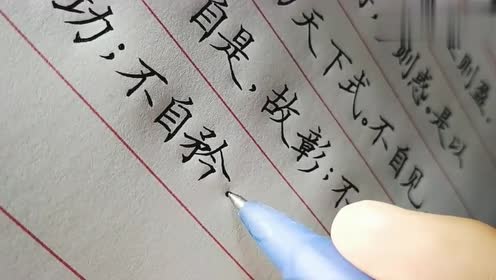 则盈，
则惑。是以
天下式。不自见
自是，故彰；不
功；不自矜